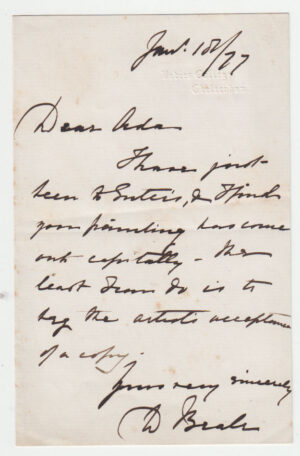 Jany. 18/77
Dear Ada
I have just
been to &, & I find
your painting has come
out capitally - the
least I can do is to
beg the artists acceptance
of a copy.
Yours very sincerely
D Beale